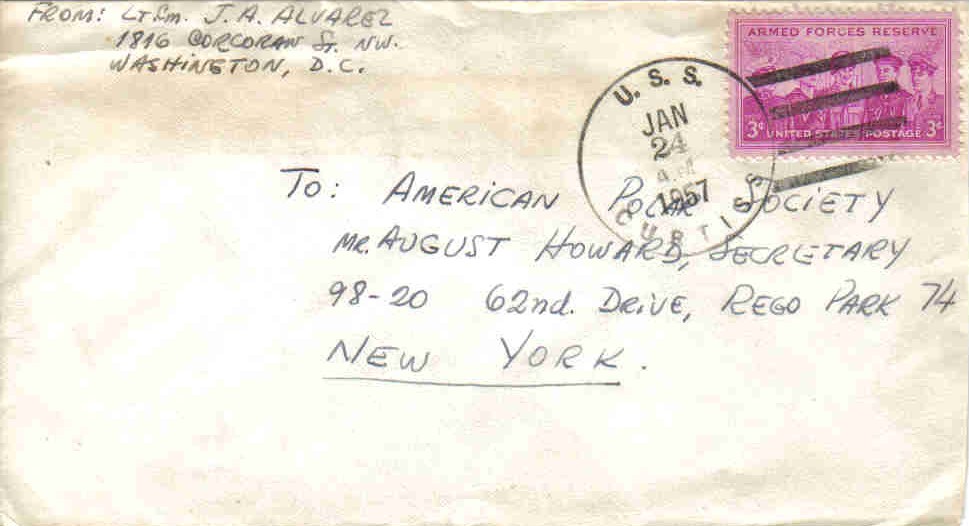 FROM: LT Cm. J. A. ALVAREZ
1816 CORCORAN St. NW.
WASHINGTON, D.C.
ARMED FORCES RESERVE
3¢ UNITED STATES POSTAGE 3¢
U.S.S. CURTISS
JAN
24
A.M
1957
TO: AMERICAN POLAR SOCIETY
MR. AUGUST HOWARD, SECRETARY
98-20 62nd. DRIVE, REGO PARK 74
NEW YORK.